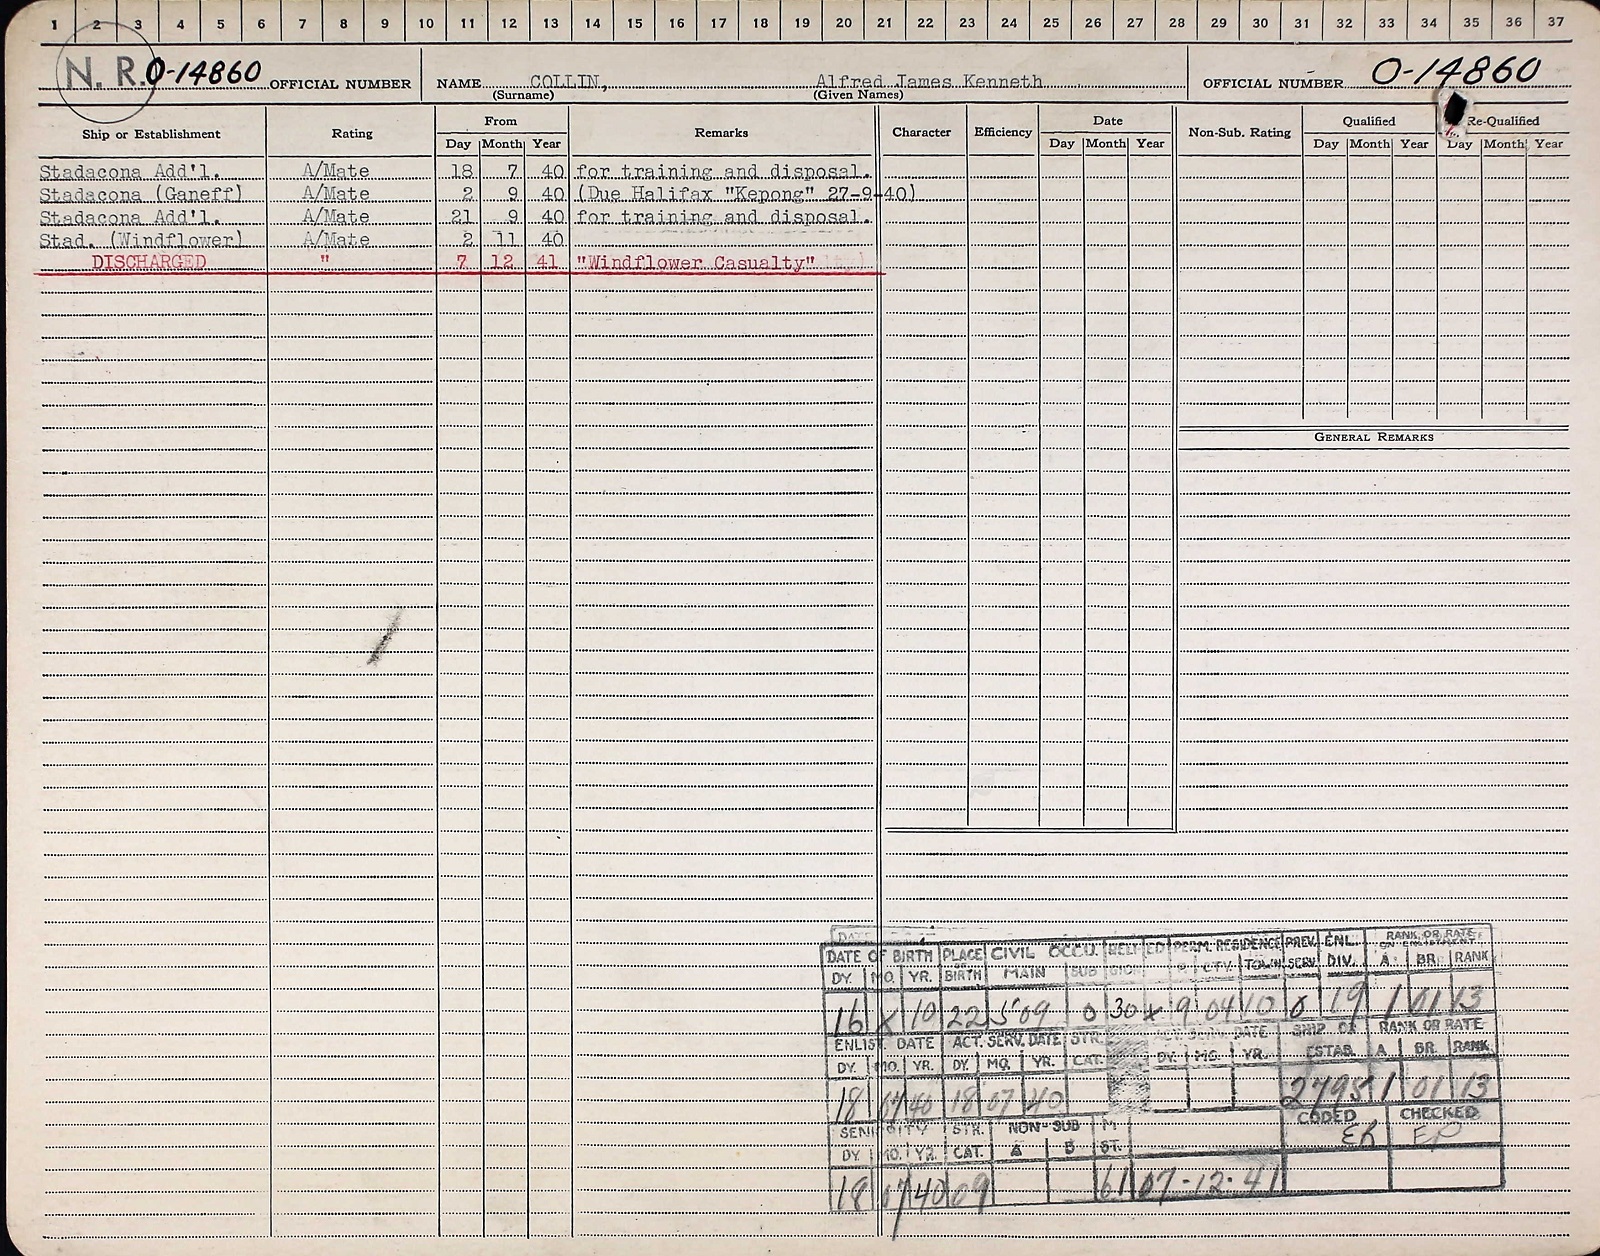 1 2 3 4 5 6 7 8 9 10 11 12 13 14 15 16 17 18 19 20 21 22 23 24 25 26 27 28 29 30 31 32 33 34 35 36 37
N. R. O-14860 OFFICIAL NUMBER NAME COLLIN, Alfred James Kenneth OFFICIAL NUMBER O-14860
(Surname) (Given Names)
Ship or Establishment Rating From Remarks Character Efficiency Date Non-Sub. Rating Qualified Re-Qualified
Day Month Year Day Month Year Day Month Year Day Month Year
Stadacona Add'l. A/Mate 18 7 40 for training and disposal.
Stadacona (Ganeff) A/Mate 2 9 40 (Due Halifax "Kepong" 27-9-40)
Stadacona Add'l. A/Mate 21 9 40 for training and disposal.
Stad. (Windflower) A/Mate 2 11 40
DISCHARGED " 7 12 41 "Windflower Casualty"
GENERAL REMARKS
DATE OF BIRTH PLACE CIVIL OCCU. PERM. RESIDENCE PREV. ENL. RANK OR RATE
DY. MO. YR. BIRTH MAIN SUB CTY. TOWN SERV. DIV. A BR. RANK
16 X 10 22 509 0 30 X 9 04 10 0 19 1 01 13
ENLIS. DATE ACT. SERV. DATE STR. DATE SHIP OR RANK OR RATE
DY. MO. YR. DY. MO. YR. CAT. DY. MO. YR. ESTAB. A BR. RANK
18 07 40 18 07 40 2795 1 01 13
SENIORITY STR. NON-SUB M CODED CHECKED
DY. MO. YR. CAT. A B ST. ER EP
18 07 40 09 61 07-12-41